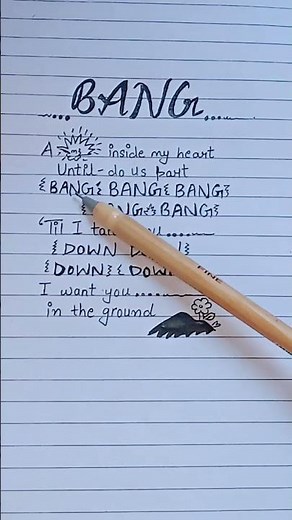 ...BANG...
A inside my heart
Until - do us part
{BANG} BANG{ BANG}
BANG}
'Til I
{DOWN
{DOWN} {
I want you......
in the ground
FINE